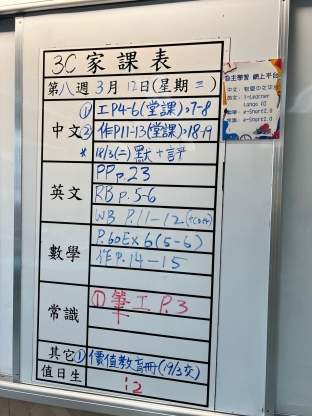 3C 家課表
第八週 3月 12日(星期三)
中文
① 工P4-6(堂課):7-8
② 作P11-13(堂課):18,19
* 18/3(二) 默+評
英文
PP p.23
RB p.5-6
WB P.11-12
數學
P.60 Ex 6 (5-6)
作P.14-15
常識
① 筆-工 P.3
其它
① 價值教育冊(19/3交)
值日生
12
自主學習 網上平台